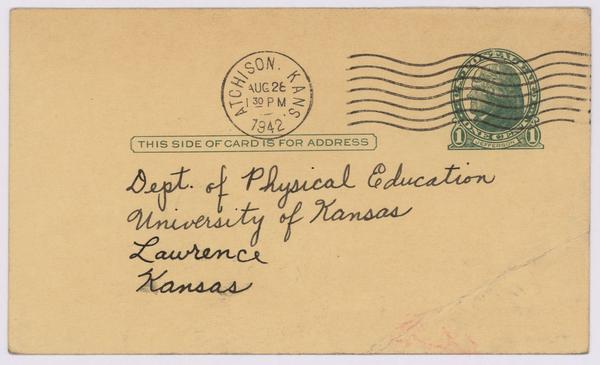 ATCHISON. KANS.
AUG 26
1 30 PM
1942
1 ONE CENT 1
JEFFERSON
THIS SIDE OF CARD IS FOR ADDRESS
Dept. of Physical Education
University of Kansas
Lawrence
Kansas